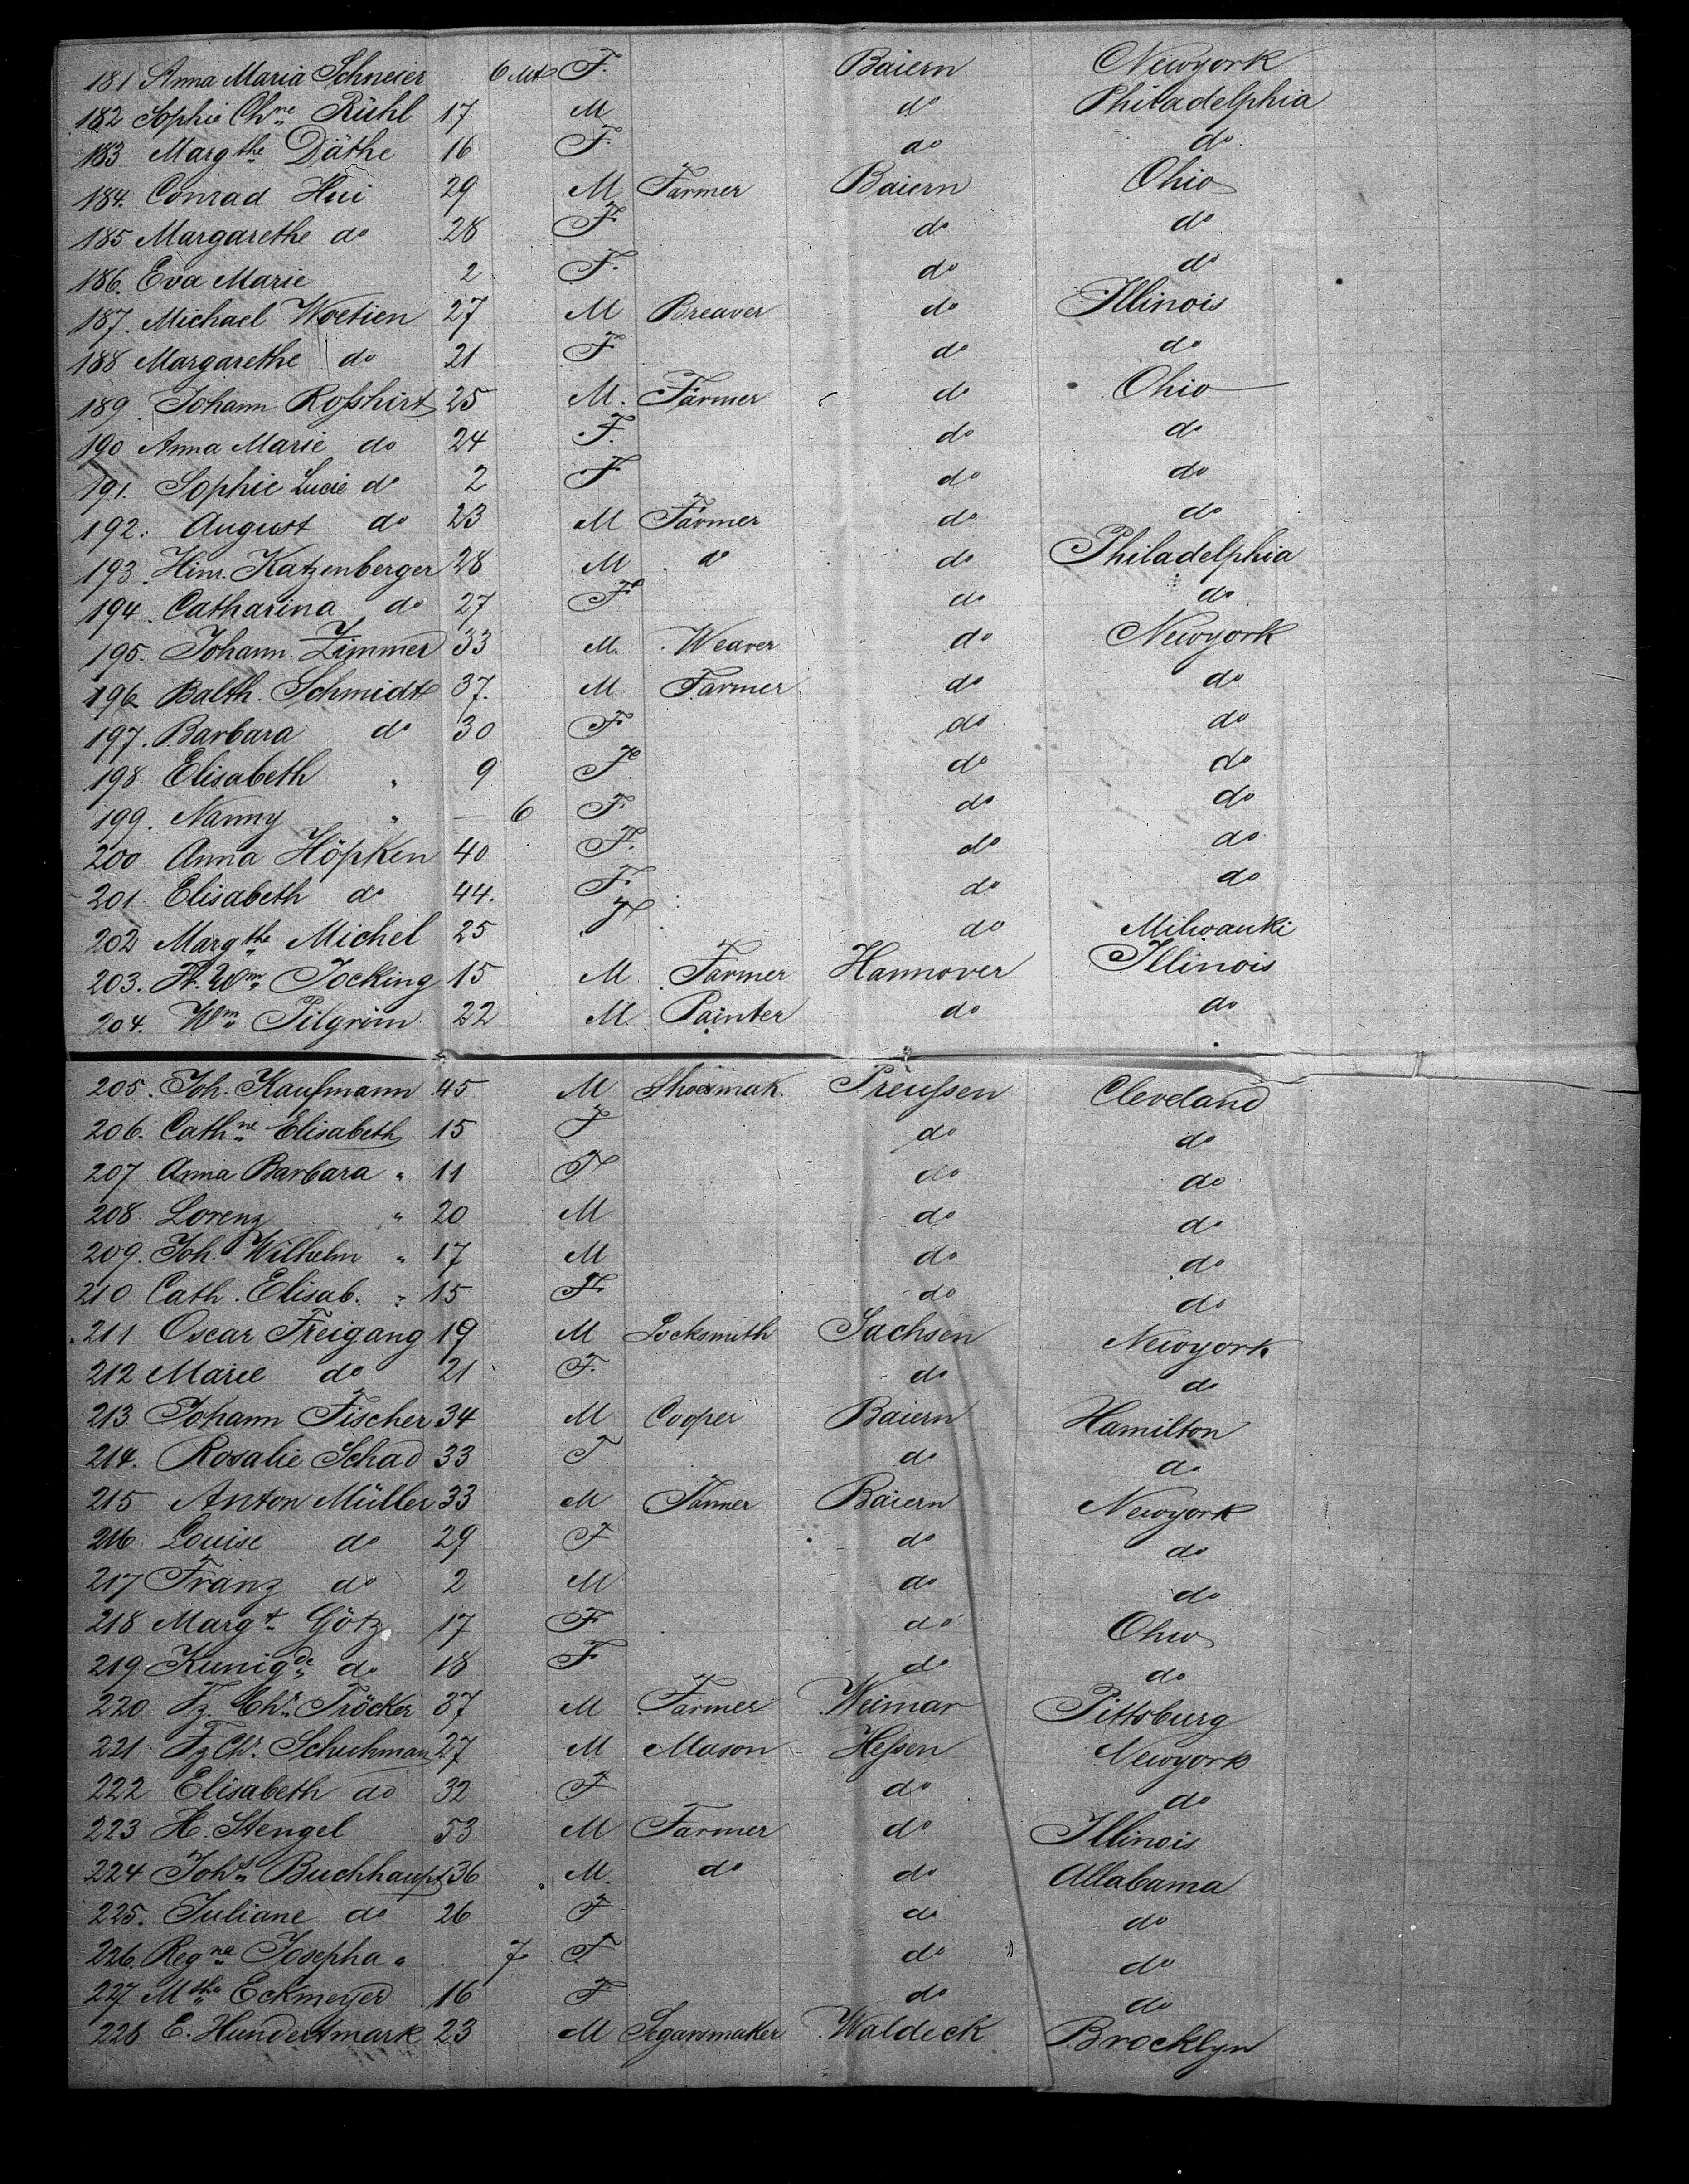 181 Anna Maria Schneier 6 Mt F. Baiern Newyork
182 Sophie Chne Rühl 17 M do Philadelphia
183 Margthe Däthe 16 F. do do
184. Conrad Hui 29 M Farmer Baiern Ohio
185 Margarethe do 28 F do do
186. Eva Marie 2 F. do do
187. Michael Woetien 27 M Breaver do Illinois
188 Margarethe do 21 F do do
189. Johann Roſshirt 25 M. Farmer do Ohio
190 Anna Marie do 24 F. do do
191. Sophie Lucie do 2 F do do
192. August do 23 M Farmer do do
193. Hinr. Katzenberger 28 M do do Philadelphia
194. Catharina do 27 F do do
195. Johann Zimmer 33 M. Weaver do Newyork
196 Balth. Schmidt 37. M Farmer do do
197. Barbara do 30 F do do
198 Elisabeth " 9 F do do
199. Nanny " — 6 F do do
200 Anna Höpken 40 F. do do
201. Elisabeth do 44. F do do
202 Margthe Michel 25 F do Milwauki
203. Wm Jocking 15 M Farmer Hannover Illinois
204. Wm Pilgrim 22 M. Painter do do
205. Joh. Kaufmann 45 M Shoesmak. Preuſsen Cleveland
206. Cathne Elisabeth 15 F do do
207 Anna Barbara " 11 F do do
208. Lorenz " 20 M do do
209. Joh. Wilhelm " 17 M do do
210 Cath. Elisab. " 15 F do do
211 Oscar Freigang 19 M Locksmith Sachsen Newyork
212 Marie do 21 F. do do
213 Johann Fischer 34 M Cooper Baiern Hamilton
214. Rosalie Schad 33 F do do
215 Anton Müller 33 M Farmer Baiern Newyork
216. Louise do 29 F do do
217 Franz do 2 M do do
218 Margt Götz 17 F do Ohio
219 Kunigde do 18 F do do
220 Fz. Chr. Tröcker 37 M Farmer Weimar Pittsburg
221. Fz Chr. Schuhman 27 M Mason Heſsen Newyork
222 Elisabeth do 32 F do do
223 H. Stengel 53 M Farmer do Illinois
224 Johs Buchhaupt 36 M. do do Allabama
225. Juliane do 26 F do do
226. Regne Josepha " 7 F do do
227 Mthe Eckmeyer 16 F do do
228 E. Hundertmark 23 M Segarsmaker Waldeck Brocklyn